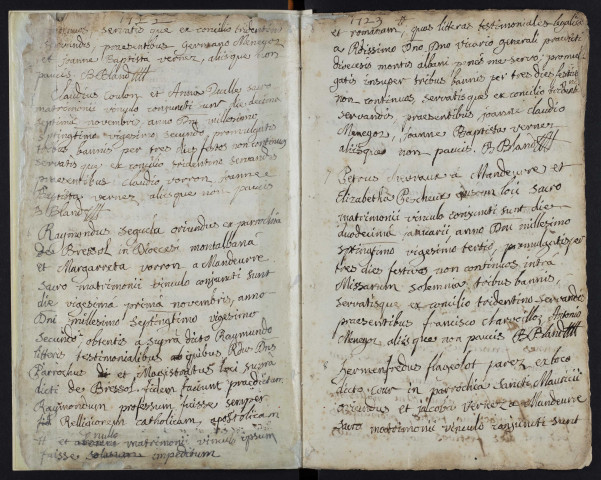 1722
servatis que ex concilio tridentino
servandis, praesentibus germano Menegoz
et Joanne Baptista vernez, aliisque non
paucis. B Bland
Claudius Coulon et Anna Ducller sacro
matrimonii vinculo conjuncti sunt die decima
septima novembris, anno Dni millesimo
septingtmo vigesimo secundo, promulgatis
tribus bannis per tres dies festos non continuos
servatis que ex concilio tridentino servandis
praesentibus claudio vorron, Joanne
Baptista vernez aliisque non paucis
B Bland
Raymondus Seguela oriundus ex parochia
de Bressol in Diocesi montalbana
et Margarreta vorron a Mandeurre
sacro matrimonii vinculo conjuncti sunt
die vigesima prima novembris, anno
Dni millesimo septingtimo vigesimo
secundo. obtentis a supra dicto Raymundo
litteris testimonialibus quibus Rdus Dnus
Parrochus et Magistratus loci supra
dicti de Bressol fidem faciunt praedictum
Raymondum professum fuisse semper
Relligionem catholicam, apostolicam
et nullo matrimonii vinculo ipsum
fuisse impeditum
1723
et romanam, quas litteras testimoniales legalisatas
a Rdissimo Dno Dno vicario generali praedicti
diocesis montis albani penes me servo; promul
gatis insuper tribus bannis per tres dies festivos
non continuos, servatisque ex concilio tridentino
servandis praesentibus joanne claudio
Menegoz, Joanne Baptista vernez
aliisque non paucis. B Bland
Petrus chevraux a Mandeurre et
Elizabetha Pechuir eiusdem loci sacro
matrimonii vinculo conjuncti sunt die
duodecima januarii anno Dni millesimo
septingtimo vigesimo tertio, promulgatis per
tres dies festivos non continuos intra
Missarum solemnia tribus bannis,
servatisque ex concilio tridentino servandis
praesentibus francisco charpilloz Antonio
Menegoz aliisque non paucis B Bland
hermenfredus flageolot parez ex loco
dicto cour in parrochia sancti Mauricii
oriundus et jacoba vernez a Mandeurre
sacro matrimonii vinculo conjuncti sunt